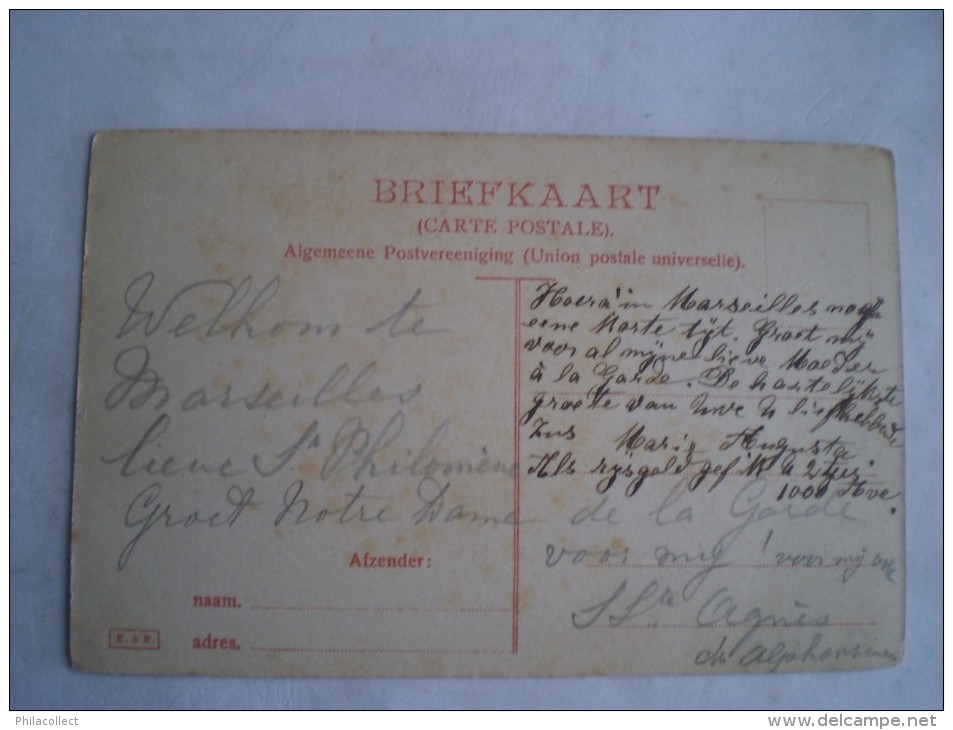 BRIEFKAART
(CARTE POSTALE).
Algemeene Postvereeniging (Union postale universelle).
Hoera! in Marseilles nog
eene Korte tijt. Groet mij
voor al mijne lieve Moeder
à la Garde. De hartelijkste
groete van Uwe U liefhebbende
Zus Marie Augusta
Als rijsgeld gef ik U
1000 Ave.
Welkom te
Marseilles
lieve Sr Philomène
Groet Notre Dame de la Garde
voor mij! voor mij ook
Afzender:
naam.
adres.
Agnès
Alphonsine
E. & B.
Philacollect
http://www.delcampe.net